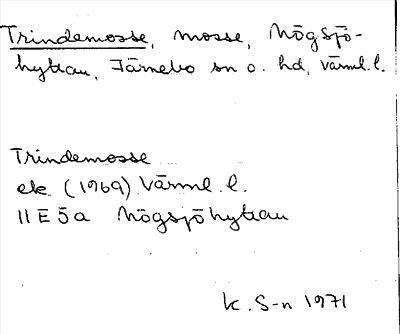 Trindemosse, mosse, Högsjö-
hyttan, Färnebo sn o. hd, Värml. l.
Trindemosse
ek. (1969) Värml. l.
11E5a Högsjöhyttan
K. S-n 1971